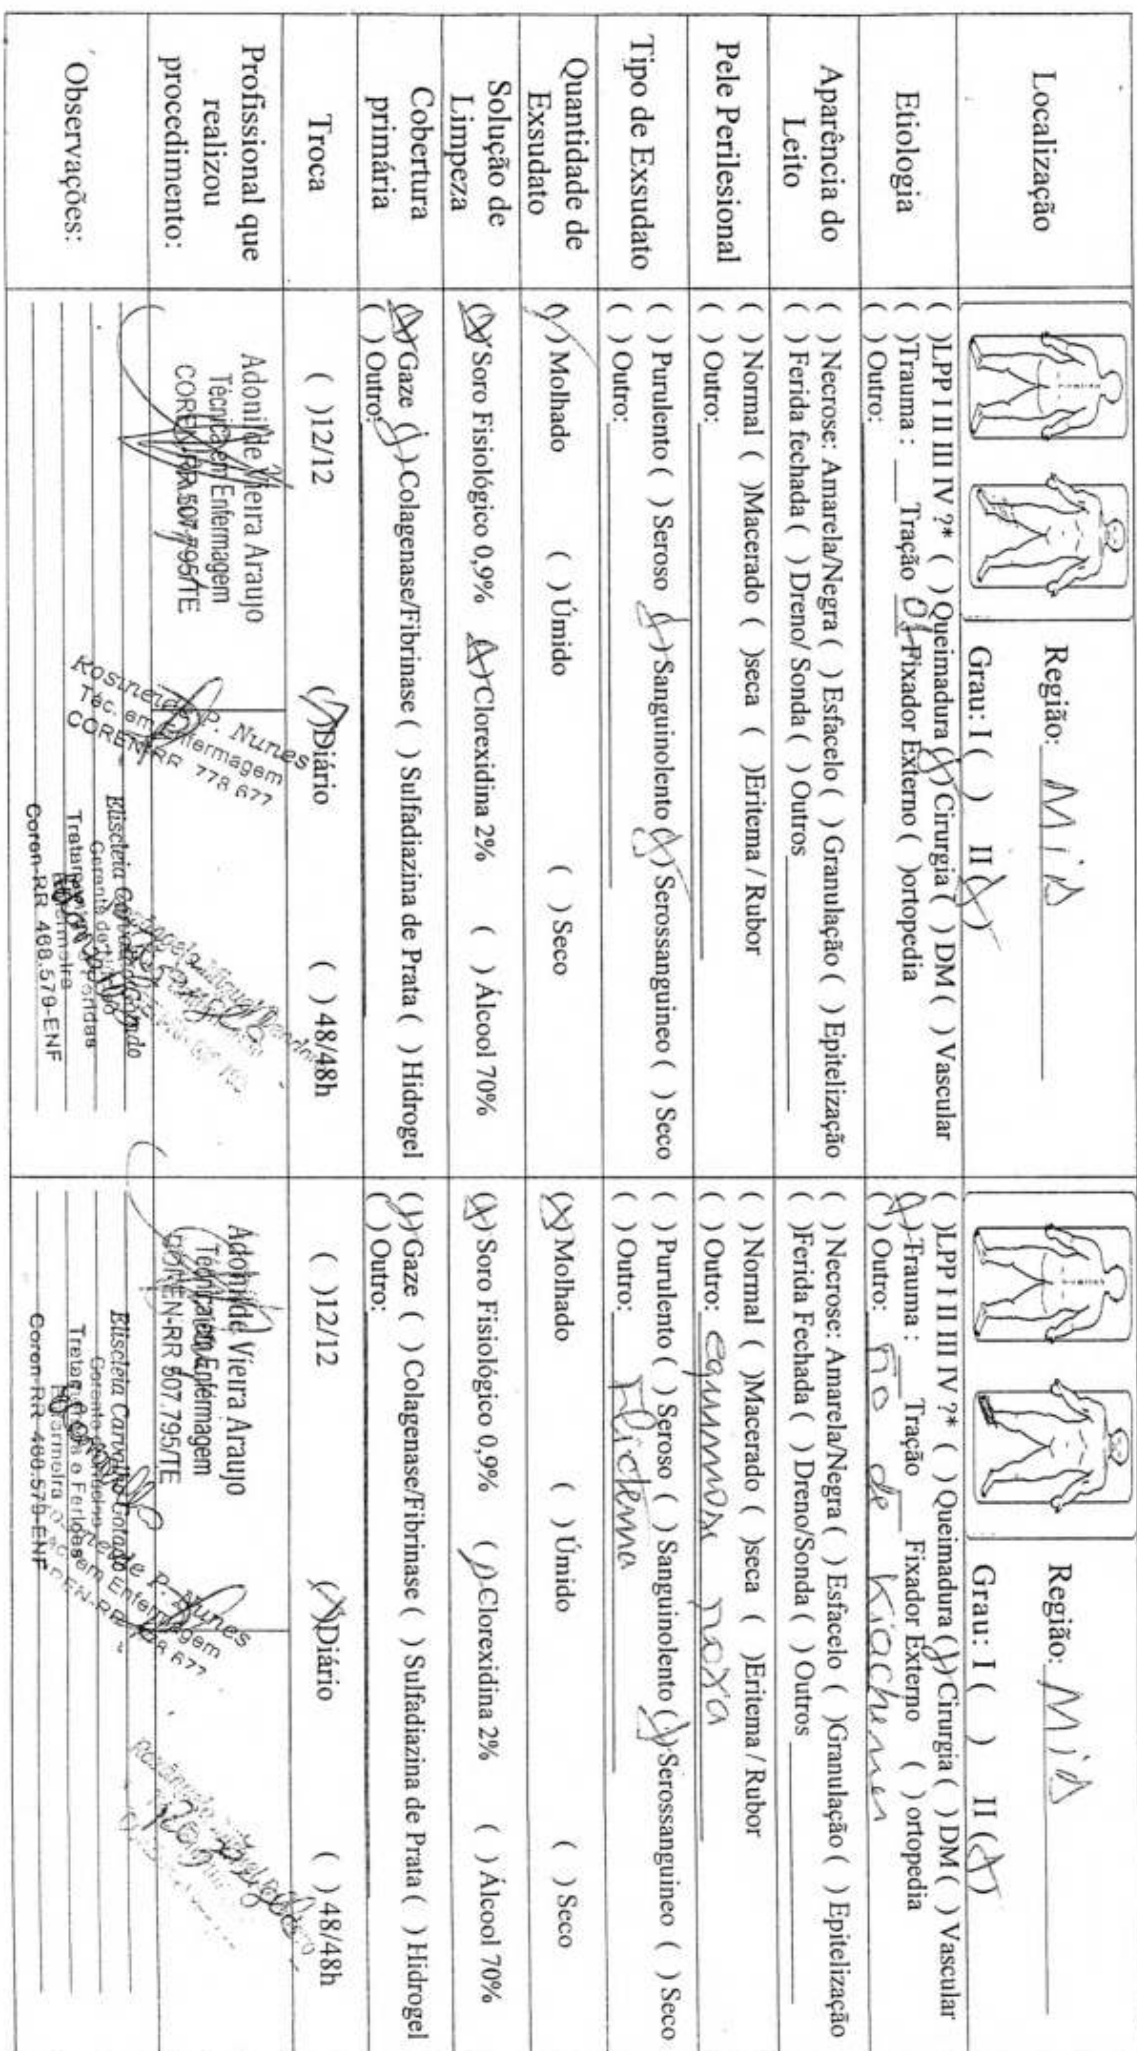 Localização
Região: MID
Grau: I ( ) II (X)
Região: MID
Grau: I ( ) II (X)
Etiologia
( )LPP I II III IV ?* ( ) Queimadura (X) Cirurgia ( ) DM ( ) Vascular
( )Trauma : ___ Tração 01 Fixador Externo ( )ortopedia
( ) Outro:
( )LPP I II III IV ?* ( ) Queimadura (X) Cirurgia ( ) DM ( ) Vascular
(X) Trauma : ___ Tração ___ Fixador Externo ( ) ortopedia
( ) Outro: fio de
Aparência do
Leito
( ) Necrose: Amarela/Negra ( ) Esfacelo ( ) Granulação ( ) Epitelização
( ) Ferida fechada ( ) Dreno/ Sonda ( ) Outros
( ) Necrose: Amarela/Negra ( ) Esfacelo ( )Granulação ( ) Epitelização
( )Ferida Fechada ( ) Dreno/Sonda ( ) Outros
Pele Perilesional
( ) Normal ( )Macerado ( )seca ( )Eritema / Rubor
( ) Outro:
( ) Normal ( )Macerado ( )seca ( )Eritema / Rubor
( ) Outro: equimose
Tipo de Exsudato
( ) Purulento ( ) Seroso (X) Sanguinolento (X) Serossanguineo ( ) Seco
( ) Outro:
( ) Purulento ( ) Seroso ( ) Sanguinolento (X) Serossanguineo ( ) Seco
( ) Outro: Flictema
Quantidade de
Exsudato
(X) Molhado ( ) Úmido ( ) Seco
(X) Molhado ( ) Úmido ( ) Seco
Solução de
Limpeza
(X) Soro Fisiológico 0,9% (X) Clorexidina 2% ( ) Álcool 70%
(X) Soro Fisiológico 0,9% (/) Clorexidina 2% ( ) Álcool 70%
Cobertura
primária
(X) Gaze (X) Colagenase/Fibrinase ( ) Sulfadiazina de Prata ( ) Hidrogel
( ) Outro:
(X) Gaze ( ) Colagenase/Fibrinase ( ) Sulfadiazina de Prata ( ) Hidrogel
( ) Outro:
Troca
( )12/12 (X)Diário ( ) 48/48h
( )12/12 (X)Diário ( ) 48/48h
Profissional que
realizou
procedimento:
Adonilde Vieira Araujo
Técnica em Enfermagem
COREN-RR 507.795/TE
Rosineide P. Nunes
Téc. em Enfermagem
COREN-RR 778 677
Adonilde Vieira Araujo
Técnica em Enfermagem
COREN-RR 507.795/TE
P. Nunes
Enfermagem
Observações:
Eliscleia
Gerente de
Feridas
Enfermeira
Coren-RR 468.579-ENF
Eliscleia Carvalho
Gerente
e Feridas
Enfermeira
Coren-RR 468.579-ENF